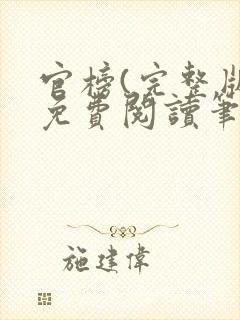 官榜(完整版
免費閱讀筆
施建偉